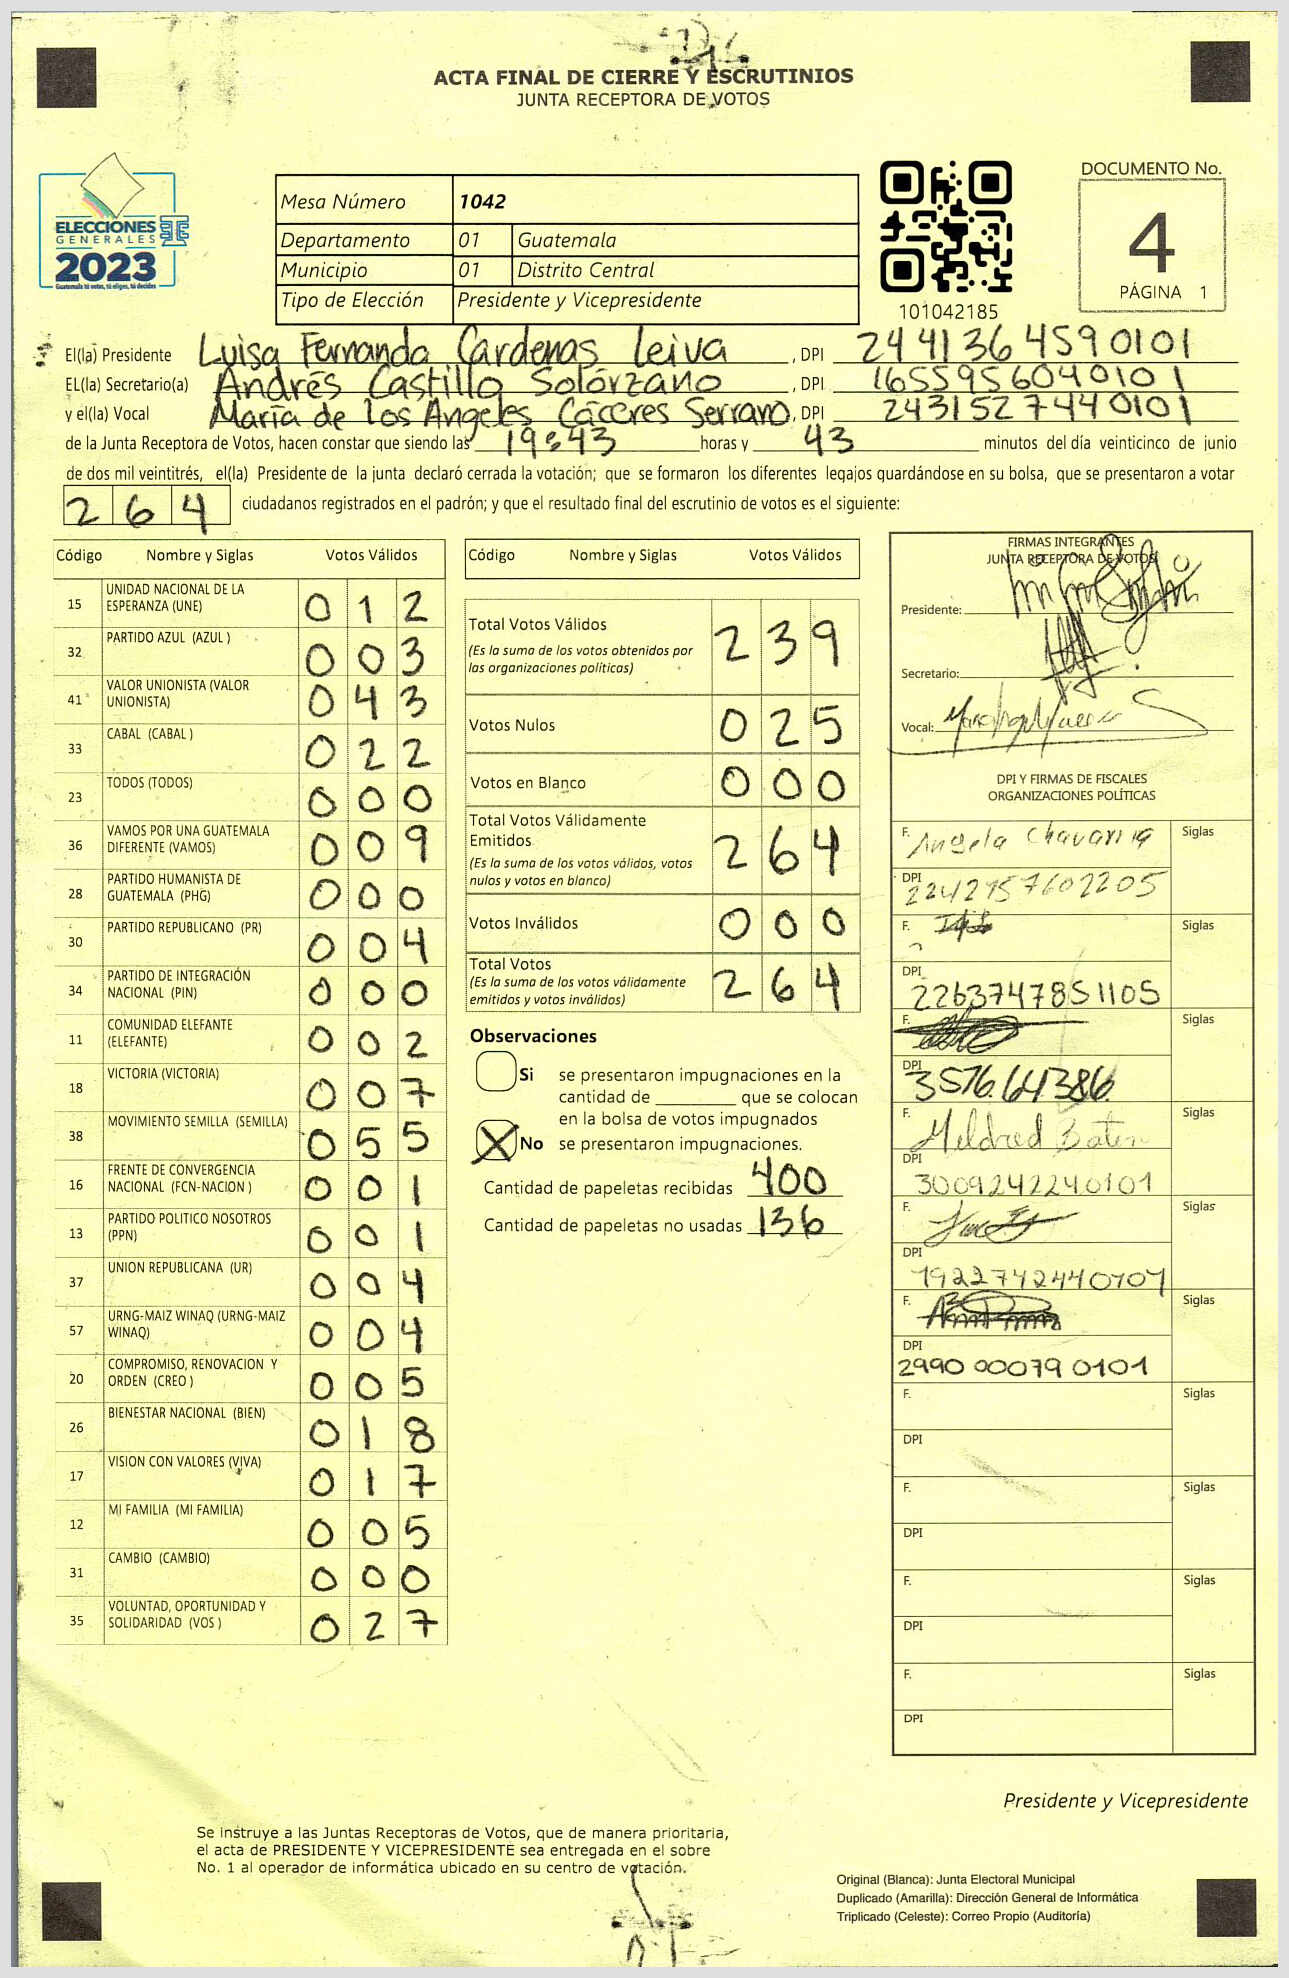 ACTA FINAL DE CIERRE Y ESCRUTINIOS
JUNTA RECEPTORA DE VOTOS
ELECCIONES
GENERALES
2023
Guatemala tú votas, tú eliges, tú decides
Mesa Número 1042
Departamento 01 Guatemala
Municipio 01 Distrito Central
Tipo de Elección Presidente y Vicepresidente
101042185
DOCUMENTO No.
4
PÁGINA 1
El(la) Presidente Luisa Fernanda Cárdenas Leiva, DPI 2441364590101
EL(la) Secretario(a) Andrés Castillo Solórzano, DPI 1655956040101
y el(la) Vocal María de los Angeles Cáceres Serrano, DPI 2431527440101
de la Junta Receptora de Votos, hacen constar que siendo las 19:43 horas y 43 minutos del día veinticinco de junio
de dos mil veintitrés, el(la) Presidente de la junta declaró cerrada la votación; que se formaron los diferentes legajos guardándose en su bolsa, que se presentaron a votar
264 ciudadanos registrados en el padrón; y que el resultado final del escrutinio de votos es el siguiente:
Código Nombre y Siglas Votos Válidos
15 UNIDAD NACIONAL DE LA ESPERANZA (UNE) 012
32 PARTIDO AZUL (AZUL ) 003
41 VALOR UNIONISTA (VALOR UNIONISTA) 043
33 CABAL (CABAL ) 022
23 TODOS (TODOS) 000
36 VAMOS POR UNA GUATEMALA DIFERENTE (VAMOS) 009
28 PARTIDO HUMANISTA DE GUATEMALA (PHG) 000
30 PARTIDO REPUBLICANO (PR) 004
34 PARTIDO DE INTEGRACIÓN NACIONAL (PIN) 000
11 COMUNIDAD ELEFANTE (ELEFANTE) 002
18 VICTORIA (VICTORIA) 007
38 MOVIMIENTO SEMILLA (SEMILLA) 055
16 FRENTE DE CONVERGENCIA NACIONAL (FCN-NACION ) 001
13 PARTIDO POLITICO NOSOTROS (PPN) 001
37 UNION REPUBLICANA (UR) 004
57 URNG-MAIZ WINAQ (URNG-MAIZ WINAQ) 004
20 COMPROMISO, RENOVACION Y ORDEN (CREO ) 005
26 BIENESTAR NACIONAL (BIEN) 018
17 VISION CON VALORES (VIVA) 017
12 MI FAMILIA (MI FAMILIA) 005
31 CAMBIO (CAMBIO) 000
35 VOLUNTAD, OPORTUNIDAD Y SOLIDARIDAD (VOS ) 027
Código Nombre y Siglas Votos Válidos
Total Votos Válidos 239
(Es la suma de los votos obtenidos por
las organizaciones políticas)
Votos Nulos 025
Votos en Blanco 000
Total Votos Válidamente
Emitidos 264
(Es la suma de los votos válidos, votos
nulos y votos en blanco)
Votos Inválidos 000
Total Votos 264
(Es la suma de los votos válidamente
emitidos y votos inválidos)
Observaciones
Si se presentaron impugnaciones en la
cantidad de ________ que se colocan
en la bolsa de votos impugnados
X No se presentaron impugnaciones.
Cantidad de papeletas recibidas 400
Cantidad de papeletas no usadas 136
FIRMAS INTEGRANTES
JUNTA RECEPTORA DE VOTOS
Presidente:
Secretario:
Vocal:
DPI Y FIRMAS DE FISCALES
ORGANIZACIONES POLÍTICAS
F. Angela Chavarria Siglas
DPI 2242757602205
F. Siglas
DPI 2263747851105
F. Siglas
DPI 3576.64386
F. Mildred Baten Siglas
DPI 3009242240101
F. Siglas
DPI
F. Siglas
DPI 2990 00079 0101
F. Siglas
DPI
F. Siglas
DPI
F. Siglas
DPI
F. Siglas
DPI
Presidente y Vicepresidente
Se instruye a las Juntas Receptoras de Votos, que de manera prioritaria,
el acta de PRESIDENTE Y VICEPRESIDENTE sea entregada en el sobre
No. 1 al operador de informática ubicado en su centro de votación.
Original (Blanca): Junta Electoral Municipal
Duplicado (Amarilla): Dirección General de Informática
Triplicado (Celeste): Correo Propio (Auditoría)